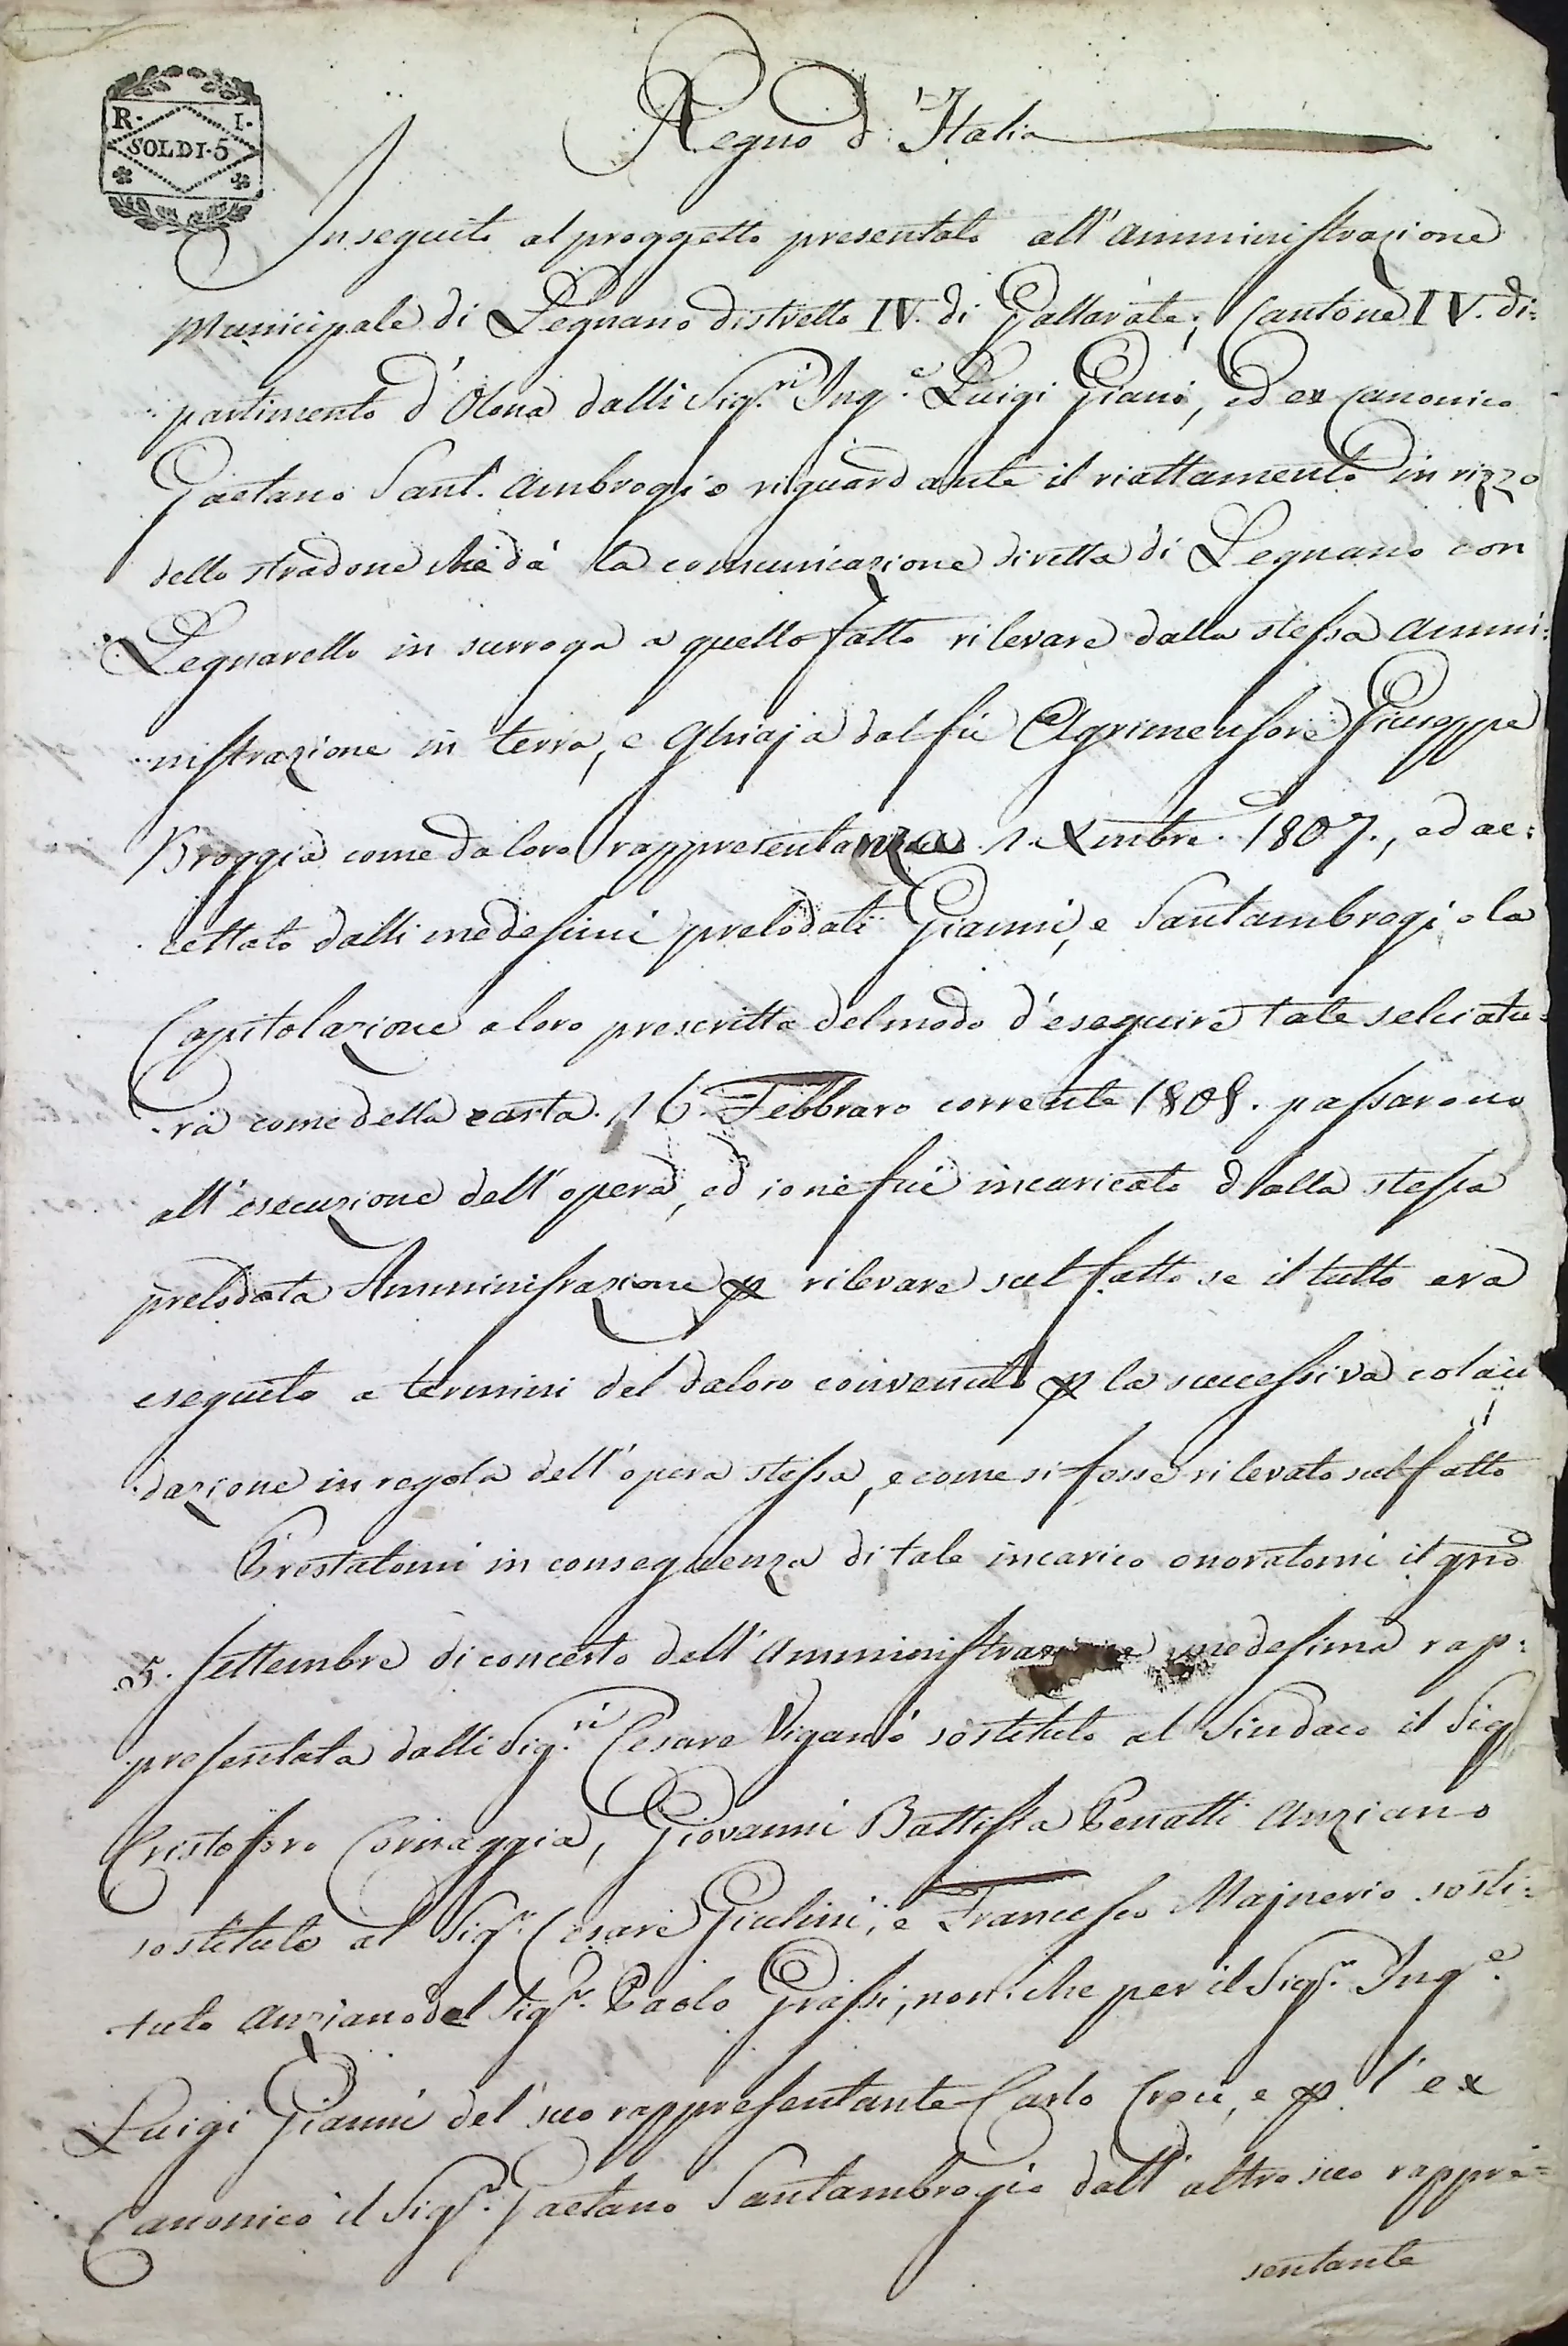 R. I.
SOLDI. 5
Regno d'Italia
In seguito al proggetto presentato all'amministrazione
Municipale di Legnano distretto IV. di Gallarate, Cantone IV. di:
partimento d'Olona dalli Sig.ri Ing.e Luigi Giani, ed ex Canonico
Gaetano Sant'Ambrogio risguardante il riattamento in rizzo
dello stradone che dà la comunicazione diretta di Legnano con
Legnarello in surroga a quello fatto rilevare dalla stessa Ammi:
nistrazione in terra, e Ghiaja dal fù Agrimensore Giuseppe
Broggia come da loro rappresentanza 1. Xmbre. 1807., ed ac:
cettato dalli medesimi prelodati Gianni, e Santambrogio la
Capitolazione a loro prescritta del modo d'eseguire tale selciatu:
ra come della carta. 16. Febbraro corrente 1808. passarono
all'esecuzione dell'opera, ed io nè fuì incaricato dalla stessa
prelodata Amministrazione p rilevare sul fatto se il tutto era
eseguito a termini del da loro convenuto p la successiva colau
dazione in regola dell'opera stessa, e come si fosse rilevato sul fatto
Prestatomi in conseguenza di tale incarico onoratomi il gno
5. Settembre di concerto dell'Amministrazione medesima rap:
presentata dalli Sig.ri Cesare Viganò sostituto al Sindaco il Sig
Cristoforo Cornaggia, Giovanni Battista Penatti Anziano
sostituto al Sig.r Cesare Giulini, e Francesco Majnerio sosti:
tuto Anziano del Sig.r Paolo Grassi, non che per il Sig.r Ing.e
Luigi Gianni del suo rappresentante Carlo Croci, e p l'ex
Canonico il Sig.r Gaetano Santambrogio dall'altro suo rappre:
sentante